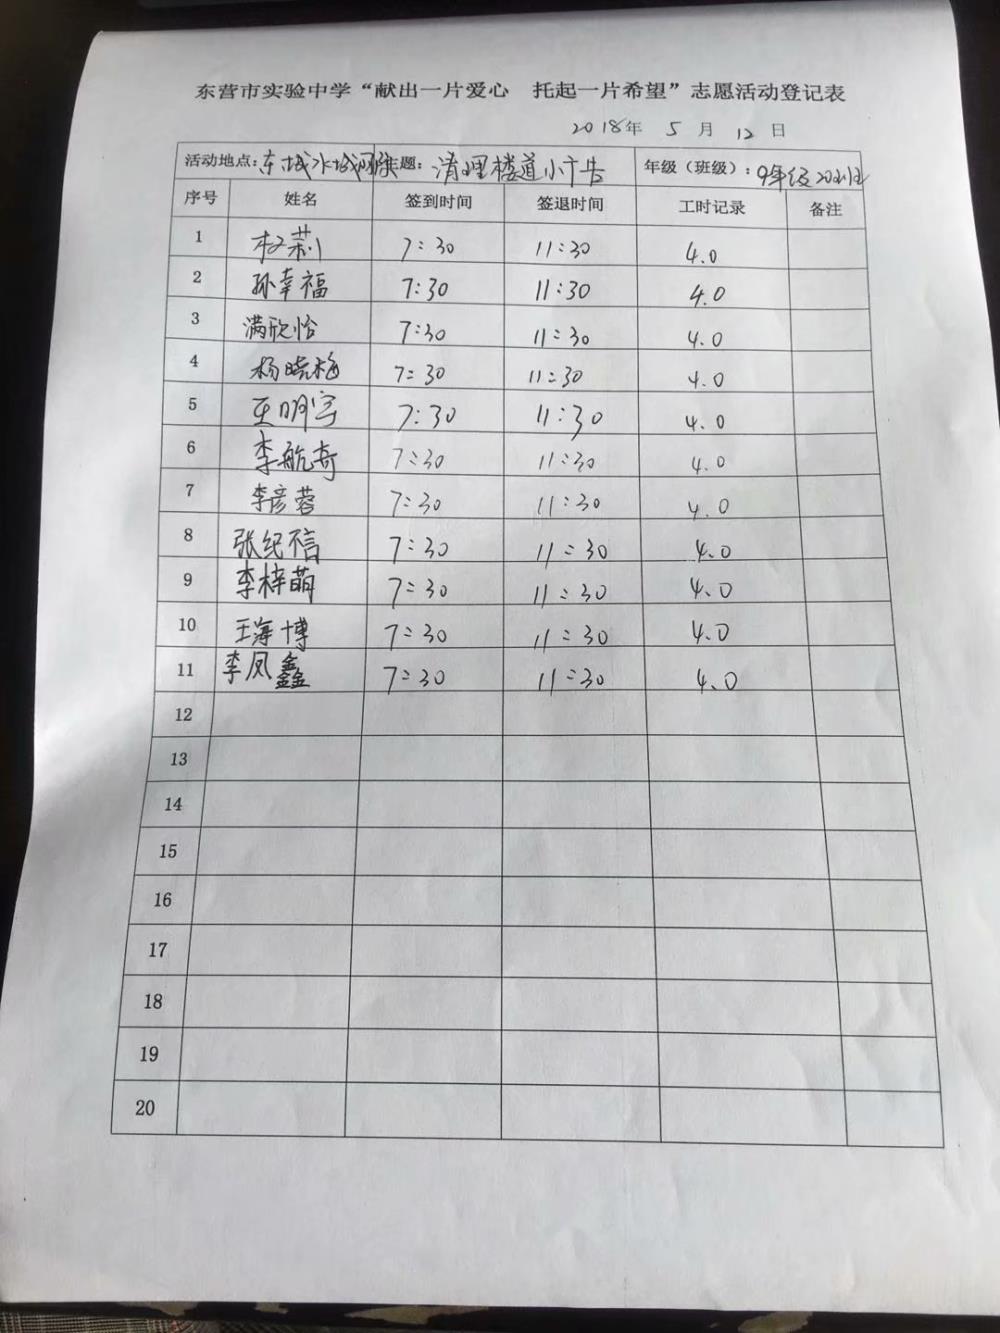 东营市实验中学“献出一片爱心 托起一片希望”志愿活动登记表
2018年 5 月 12 日
活动地点：东城水城 主题：清理楼道小广告 年级（班级）：9年级
序号 姓名 签到时间 签退时间 工时记录 备注
1 莉 7:30 11:30 4.0
2 孙幸福 7:30 11:30 4.0
3 满欣怡 7:30 11:30 4.0
4 杨晓梅 7:30 11:30 4.0
5 王明宇 7:30 11:30 4.0
6 李航奇 7:30 11:30 4.0
7 李彦蓉 7:30 11:30 4.0
8 张纪 7:30 11:30 4.0
9 李梓萌 7:30 11:30 4.0
10 王海博 7:30 11:30 4.0
11 李凤鑫 7:30 11:30 4.0
12
13
14
15
16
17
18
19
20